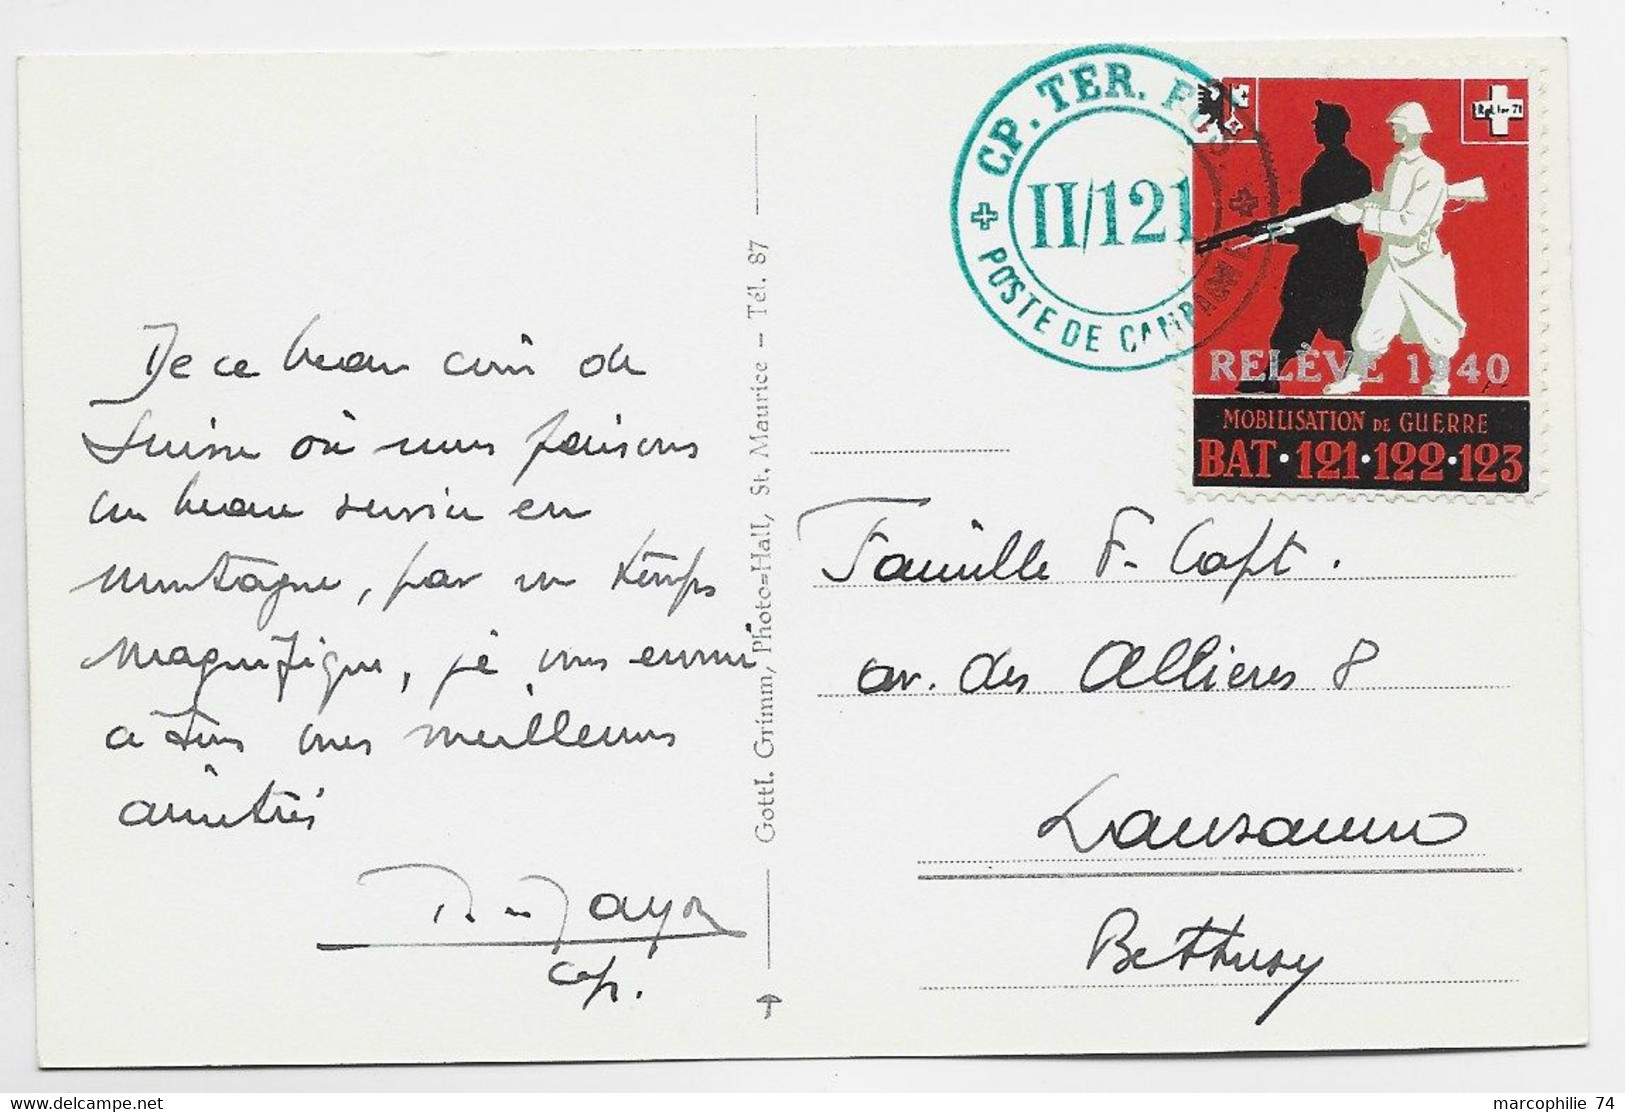 De ce beau coin de
Suisse où nous faisons
un beau service en
montagne, par un temps
magnifique, je vous envoie
a tous mes meilleures
amitiés
cap.
Gottl. Grimm, Photo=Hall, St. Maurice – Tél. 87
CP. TER. FUS.
II/121
POSTE DE CAMPAGNE
RELÈVE 1940
MOBILISATION DE GUERRE
BAT · 121 · 122 · 123
Famille F. Capt.
av. des Allières 8
Lausanne
Béthusy
www.delcampe.net
marcophilie 74